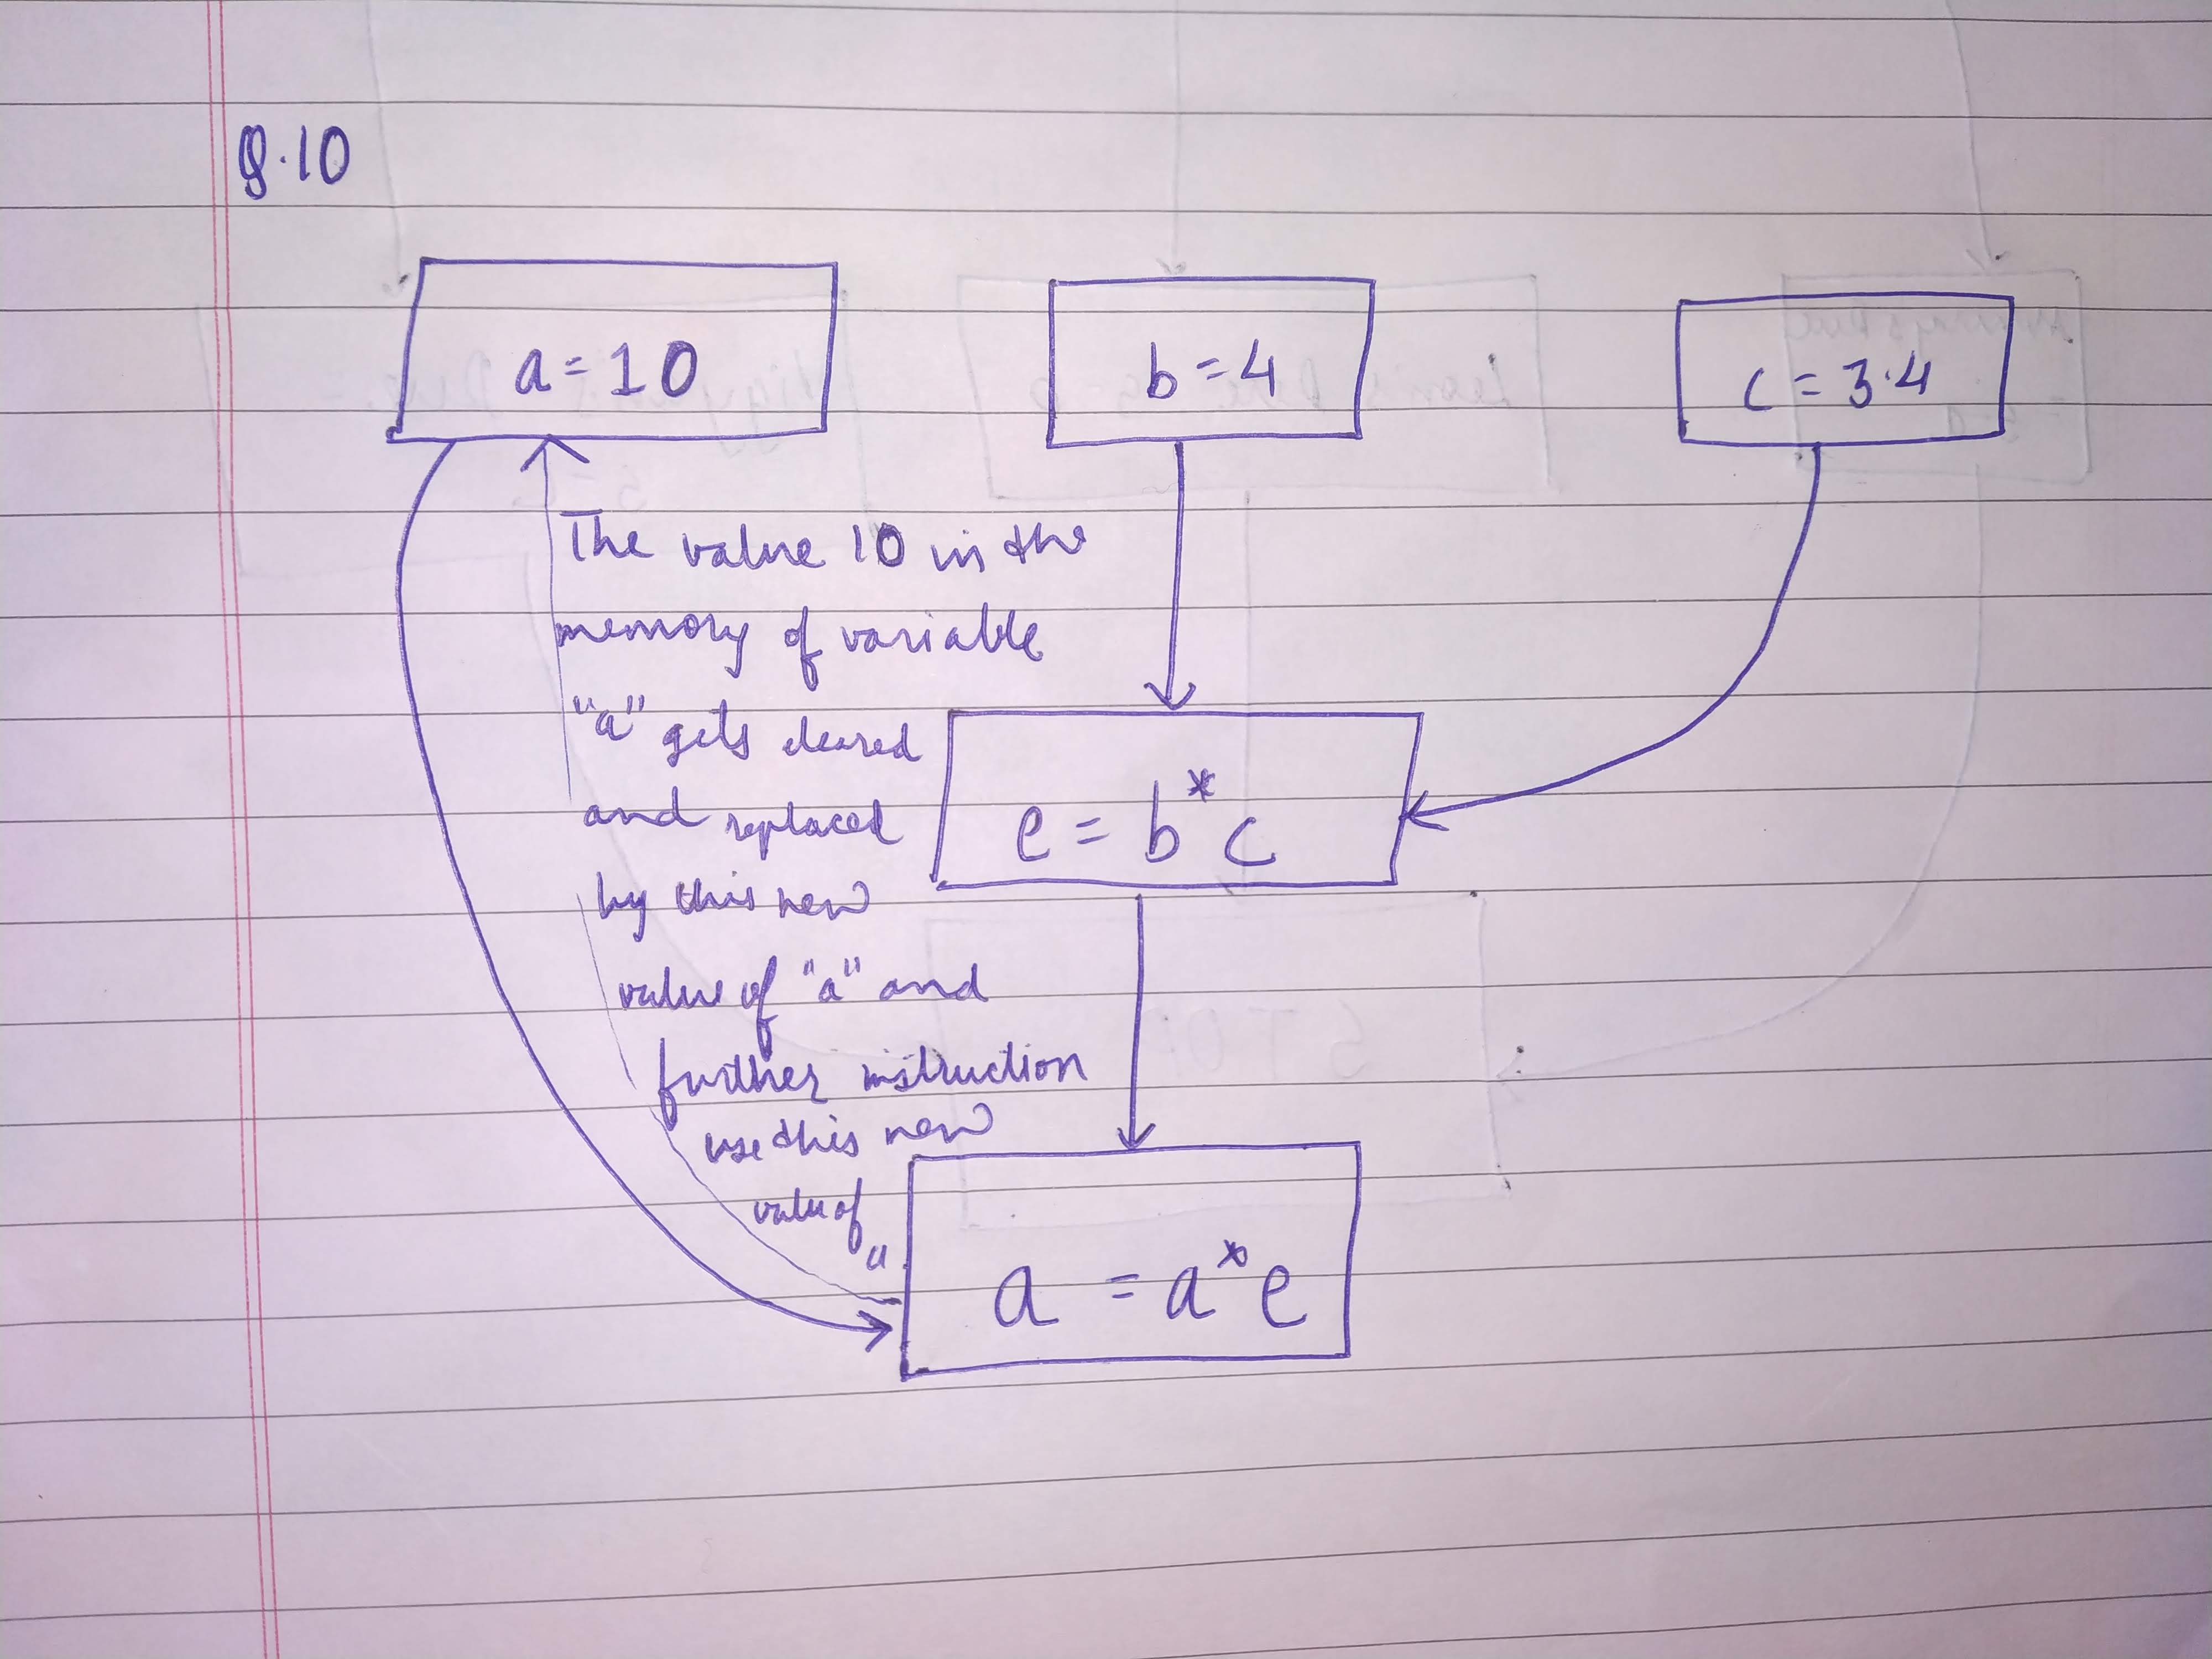 Q.10
a = 10
b = 4
c = 3.4
The value 10 in the
memory of variable
"a" gets cleared
and replaced
by this new
value of "a" and
further instruction
use this new
value of
a.
e = b * c
a = a * e